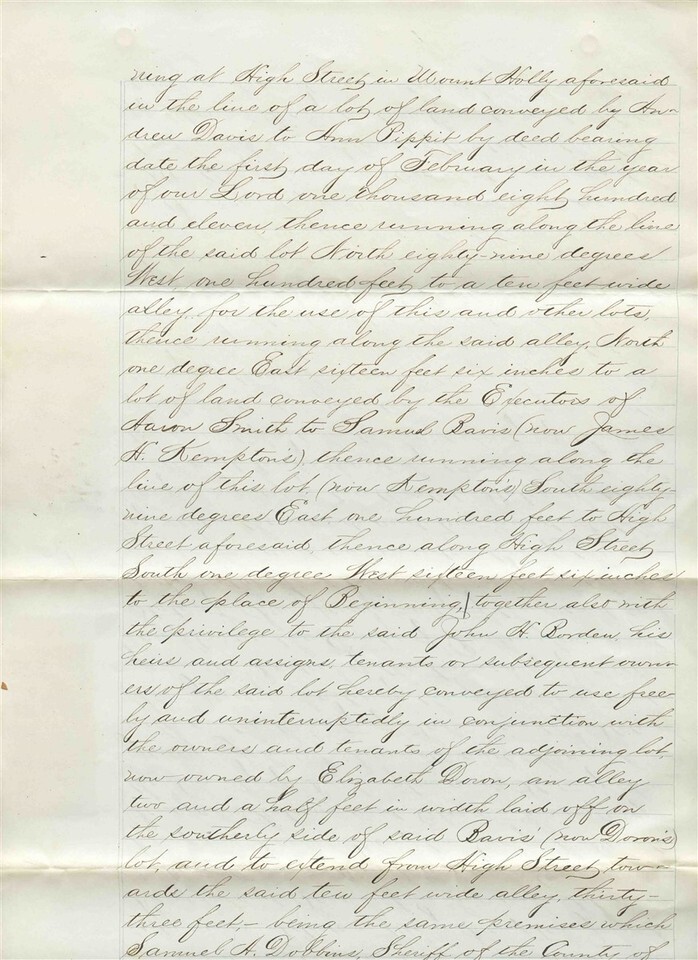 ning at High Street in Mount Holly aforesaid
in the line of a lot of land conveyed by An-
drew Davis to Ann Pippit by deed bearing
date the first day of February in the year
of our Lord one thousand eight hundred
and eleven, thence running along the line
of the said lot North eighty-nine degrees
West, one hundred feet to a ten feet wide
alley, for the use of this and other lots,
thence running along the said alley, North
one degree East sixteen feet six inches to a
lot of land conveyed by the Executors of
Aaron Smith to Samuel Bavis (now James
H. Kempton's) thence running along the
line of this lot, (now Kempton's) South eighty-
nine degrees East, one hundred feet to High
Street aforesaid, thence along High Street
South one degree West sixteen feet six inches
to the place of Beginning, together also with
the privilege to the said John H. Borden, his
heirs and assigns, tenants or subsequent own-
ers of the said lot hereby conveyed to use free-
ly and uninterruptedly in conjunction with
the owners and tenants of the adjoining lot,
now owned by Elizabeth Doron, an alley
two and a half feet in width laid off on
the southerly side of said Bavis' (now Doron's)
lot, and to extend from High Street tow-
ards the said ten feet wide alley, thirty-
three feet,- being the same premises which
Samuel A. Dobbins, Sheriff of the County of